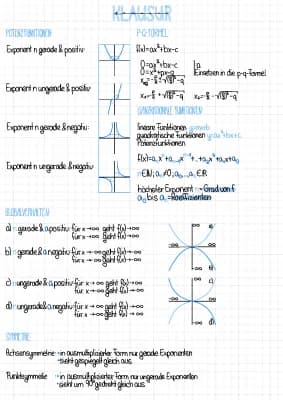 KLAUSUR
POTENZFUNKTIONEN
Exponent n gerade & positiv
Exponent n ungerade & positiv
Exponent n gerade & negativ
Exponent n ungerade & negativ
P-Q-FORMEL
f(x)=ax²+bx-c
0=ax²+bx-c |:a
0=x²+px-q Einsetzen in die p-q-Formel
GANZRATIONALE FUNKTIONEN
lineare Funktionen
quadratische Funktionen y=ax²+bx+c
Potenzfunktionen
höchster Exponent → Grad von f
a₀ bis aₙ = Koeffizienten
GLOBALVERHALTEN
a) n gerade & a positiv für x→∞ geht f(x)→∞
für x→-∞ geht f(x)→∞
b) n gerade & a negativ für x→∞ geht f(x)→-∞
für x→-∞ geht f(x)→-∞
c) n ungerade & a positiv für x→∞ geht f(x)→∞
für x→-∞ geht f(x)→-∞
d) n ungerade & a negativ für x→∞ geht f(x)→-∞
für x→-∞ geht f(x)→∞
a)
b)
c)
d)
SYMMETRIE
Achsensymmetrie → in ausmultiplizierter Form nur gerade Exponenten
→ sieht gespiegelt gleich aus
Punktsymmetrie → in ausmultiplizierter Form nur ungerade Exponenten
→ sieht um 90° gedreht gleich aus